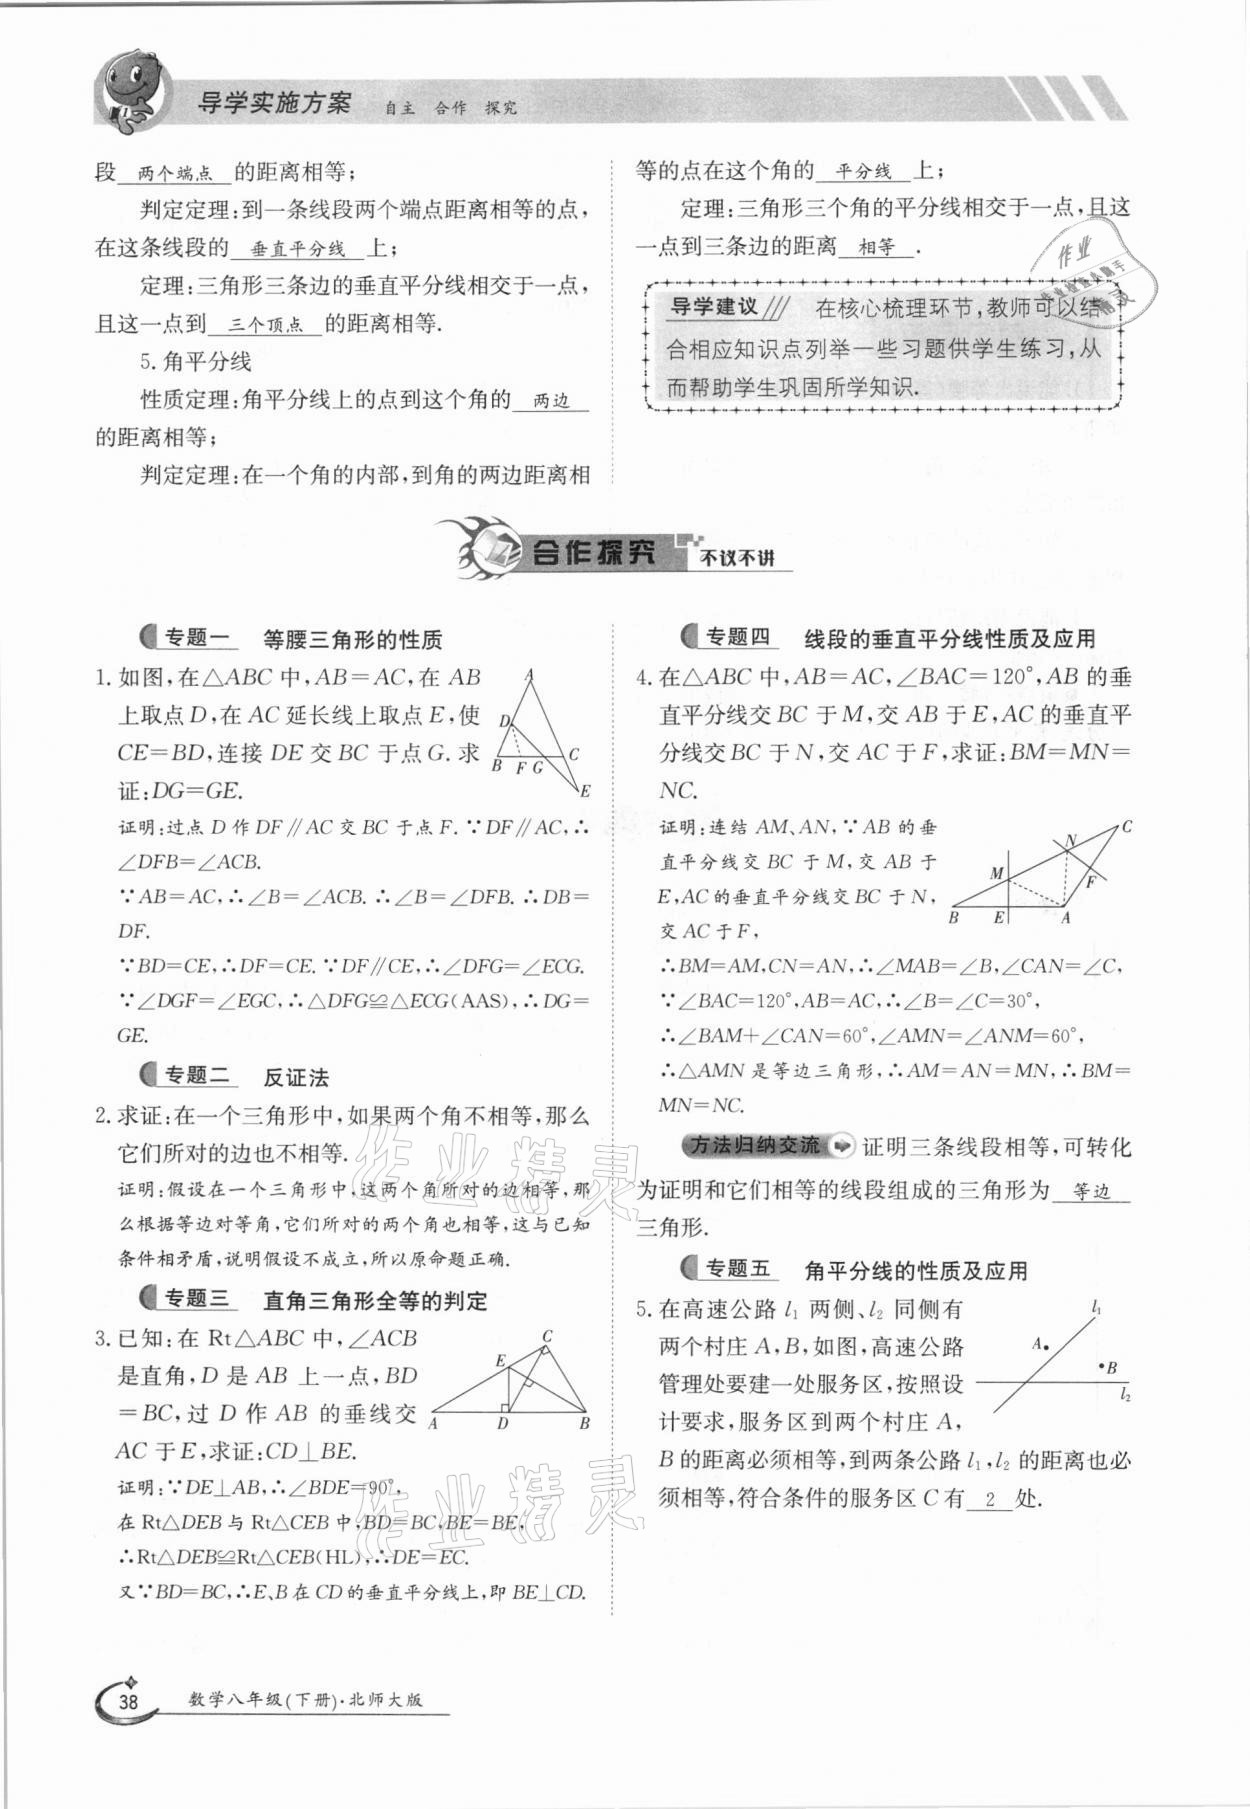 导学实施方案 自主 合作 探究
段 两个端点 的距离相等;
判定定理:到一条线段两个端点距离相等的点,
在这条线段的 垂直平分线 上;
定理:三角形三条边的垂直平分线相交于一点,
且这一点到 三个顶点 的距离相等.
5. 角平分线
性质定理:角平分线上的点到这个角的 两边
的距离相等;
判定定理:在一个角的内部,到角的两边距离相
等的点在这个角的 平分线 上;
定理:三角形三个角的平分线相交于一点,且这
一点到三条边的距离 相等 .
导学建议 在核心梳理环节,教师可以结
合相应知识点列举一些习题供学生练习,从
而帮助学生巩固所学知识.
合作探究 不议不讲
专题一 等腰三角形的性质
1. 如图,在△ABC中,AB=AC,在AB
上取点D,在AC延长线上取点E,使
CE=BD,连接DE交BC于点G.求
证:DG=GE.
A
D
B F G C
E
证明:过点D作DF∥AC交BC于点F.∵DF∥AC,∴
∠DFB=∠ACB.
∵AB=AC,∴∠B=∠ACB.∴∠B=∠DFB.∴DB=
DF.
∵BD=CE,∴DF=CE.∵DF∥CE,∴∠DFG=∠ECG.
∵∠DGF=∠EGC,∴△DFG≌△ECG(AAS),∴DG=
GE.
专题二 反证法
2. 求证:在一个三角形中,如果两个角不相等,那么
它们所对的边也不相等.
证明:假设在一个三角形中,这两个角所对的边相等,那
么根据等边对等角,它们所对的两个角也相等,这与已知
条件相矛盾,说明假设不成立,所以原命题正确.
专题三 直角三角形全等的判定
3. 已知:在Rt△ABC中,∠ACB
是直角,D是AB上一点,BD
=BC,过D作AB的垂线交
AC于E,求证:CD⊥BE.
C
E
A D B
证明:∵DE⊥AB,∴∠BDE=90°,
在Rt△DEB与Rt△CEB中,BD=BC,BE=BE,
∴Rt△DEB≌Rt△CEB(HL),∴DE=EC.
又∵BD=BC,∴E、B在CD的垂直平分线上,即BE⊥CD.
专题四 线段的垂直平分线性质及应用
4. 在△ABC中,AB=AC,∠BAC=120°,AB的垂
直平分线交BC于M,交AB于E,AC的垂直平
分线交BC于N,交AC于F,求证:BM=MN=
NC.
证明:连结AM、AN,∵AB的垂
直平分线交BC于M,交AB于
E,AC的垂直平分线交BC于N,
交AC于F,
C
N
M
F
B E A
∴BM=AM,CN=AN,∴∠MAB=∠B,∠CAN=∠C,
∵∠BAC=120°,AB=AC,∴∠B=∠C=30°,
∴∠BAM+∠CAN=60°,∠AMN=∠ANM=60°,
∴△AMN是等边三角形,∴AM=AN=MN,∴BM=
MN=NC.
方法归纳交流 证明三条线段相等,可转化
为证明和它们相等的线段组成的三角形为 等边
三角形.
专题五 角平分线的性质及应用
5. 在高速公路l₁两侧、l₂同侧有
两个村庄A,B,如图,高速公路
管理处要建一处服务区,按照设
计要求,服务区到两个村庄A,
B的距离必须相等,到两条公路l₁,l₂的距离也必
须相等,符合条件的服务区C有 2 处.
l₁
A
B
l₂
38 数学八年级(下册)·北师大版
作业精灵
作业精灵
作业
精灵